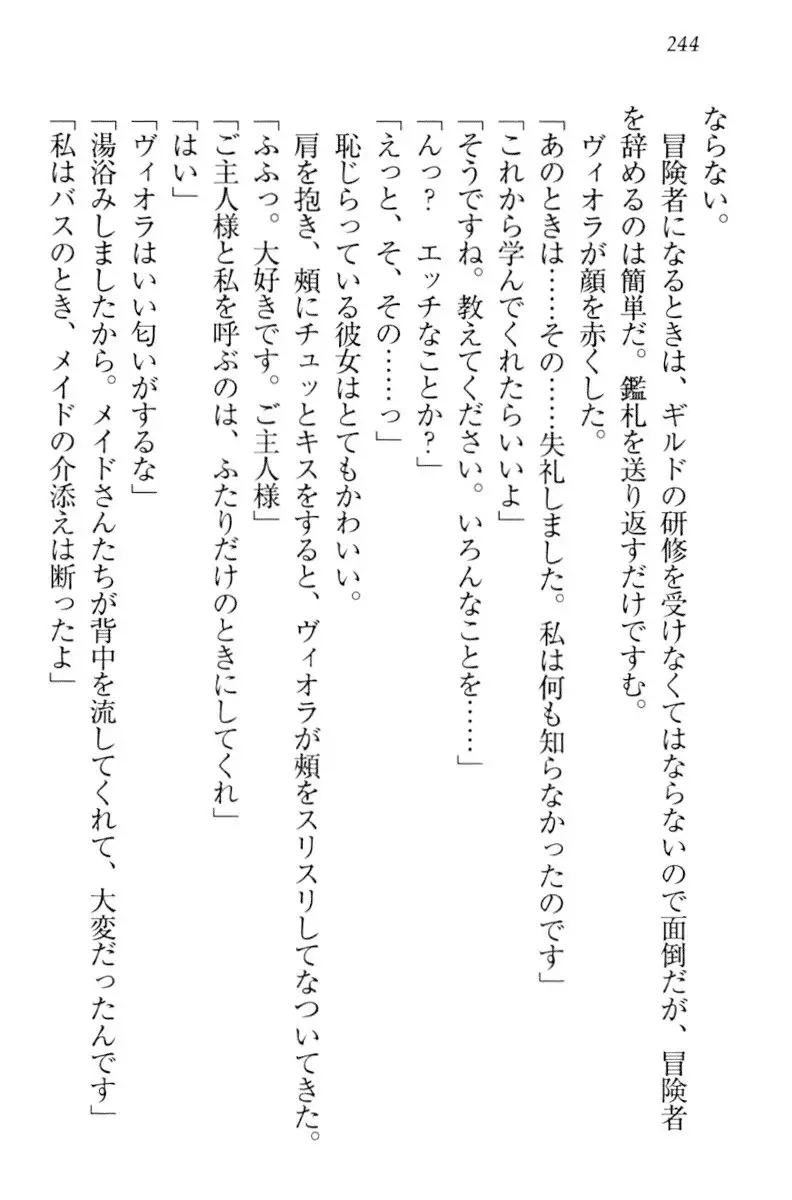 244
ならない。
　冒険者になるときは、ギルドの研修を受けなくてはならないので面倒だが、冒険者
を辞めるのは簡単だ。鑑札を送り返すだけですむ。
　ヴィオラが顔を赤くした。
「あのときは……その……失礼しました。私は何も知らなかったのです」
「これから学んでくれたらいいよ」
「そうですね。教えてください。いろんなことを……」
「んっ？　エッチなことか？」
「えっと、そ、その……っ」
　恥じらっている彼女はとてもかわいい。
　肩を抱き、頬にチュッとキスをすると、ヴィオラが頬をスリスリしてなついてきた。
「ふふっ。大好きです。ご主人様」
「ご主人様と私を呼ぶのは、ふたりだけのときにしてくれ」
「はい」
「ヴィオラはいい匂いがするな」
「湯浴みしましたから。メイドさんたちが背中を流してくれて、大変だったんです」
「私はバスのとき、メイドの介添えは断ったよ」